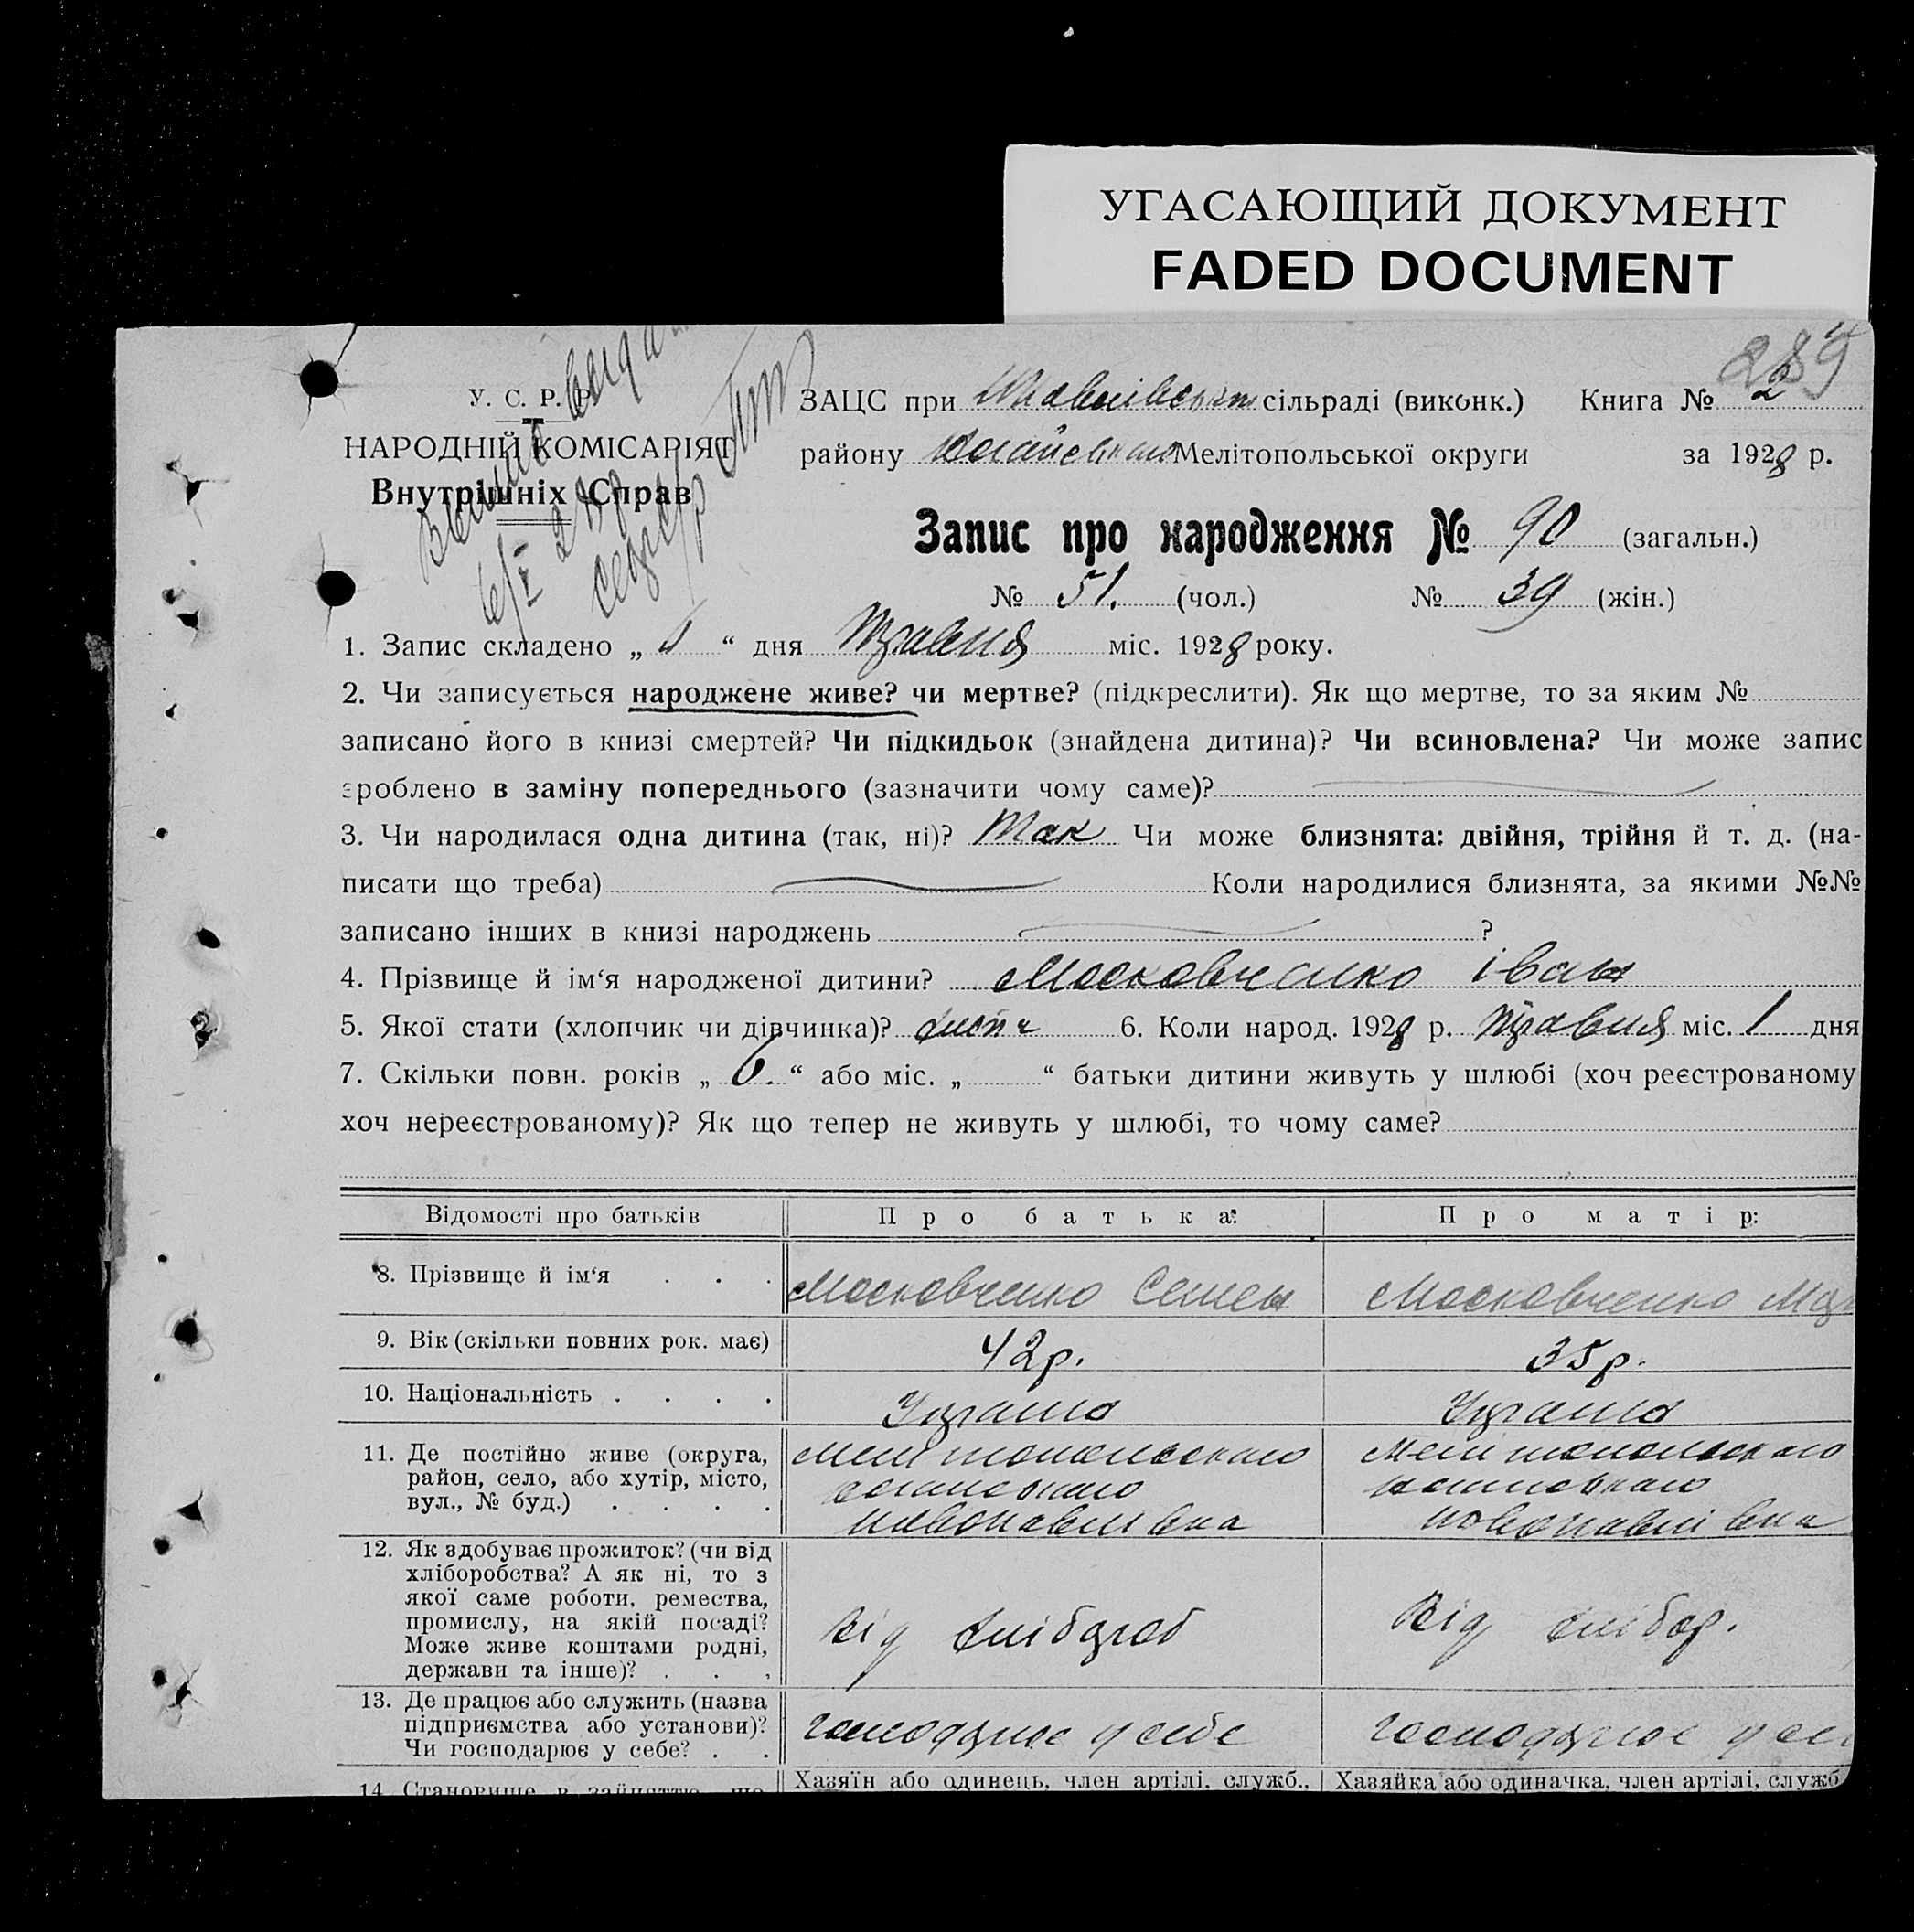 УГАСАЮЩИЙ ДОКУМЕНТ
FADED DOCUMENT
289
У. С. Р. Р.
НАРОДНІЙ КОМІСАРІЯТ
Внутрішніх Справ
ЗАЦС при сільраді (виконк.) Книга № 2
району Мелітопольської округи за 1928 р.
Запис про народження № 90 (загальн.)
№ 51. (чол.) № 39 (жін.)
1. Запис складено „ 6 “ дня Травня міс. 1928 року.
2. Чи записується народжене живе? чи мертве? (підкреслити). Як що мертве, то за яким №
записано його в книзі смертей? Чи підкидьок (знайдена дитина)? Чи всиновлена? Чи може запис
зроблено в заміну попереднього (зазначити чому саме)?
3. Чи народилася одна дитина (так, ні)? Так Чи може близнята: двійня, трійня й т. д. (на-
писати що треба) Коли народилися близнята, за якими №№
записано інших в книзі народжень ?
4. Прізвище й ім‘я народженої дитини? Московченко Іван
5. Якої стати (хлопчик чи дівчинка)? 6. Коли народ. 1928 р. Травня міс. 1 дня
7. Скільки повн. років „ 6. “ або міс. „ “ батьки дитини живуть у шлюбі (хоч реєстрованому
хоч нереєстрованому)? Як що тепер не живуть у шлюбі, то чому саме?
Відомості про батьків Про батька: Про матір:
8. Прізвище й ім‘я . . . Московченко Семен Московченко
9. Вік (скільки повних рок. має) 42 р. 35 р.
10. Національність . . . . Україна Україна
11. Де постійно живе (округа,
район, село, або хутір, місто,
вул., № буд.) . . . .
Мелітопольського
Новопавлівка
Мелітопольського
Новопавлівка
12. Як здобуває прожиток? (чи від
хліборобства? А як ні, то з
якої саме роботи, ремества,
промислу, на якій посаді?
Може живе коштами родні,
держави та інше)? . . .
Від хлібороб
Від хлібор.
13. Де працює або служить (назва
підприємства або установи)?
Чи господарює у себе? . .
господарює у себе
господарює у
14. Становище в
Хазяїн або одинець, член артілі, служб., Хазяйка або одиначка, член артілі, служб